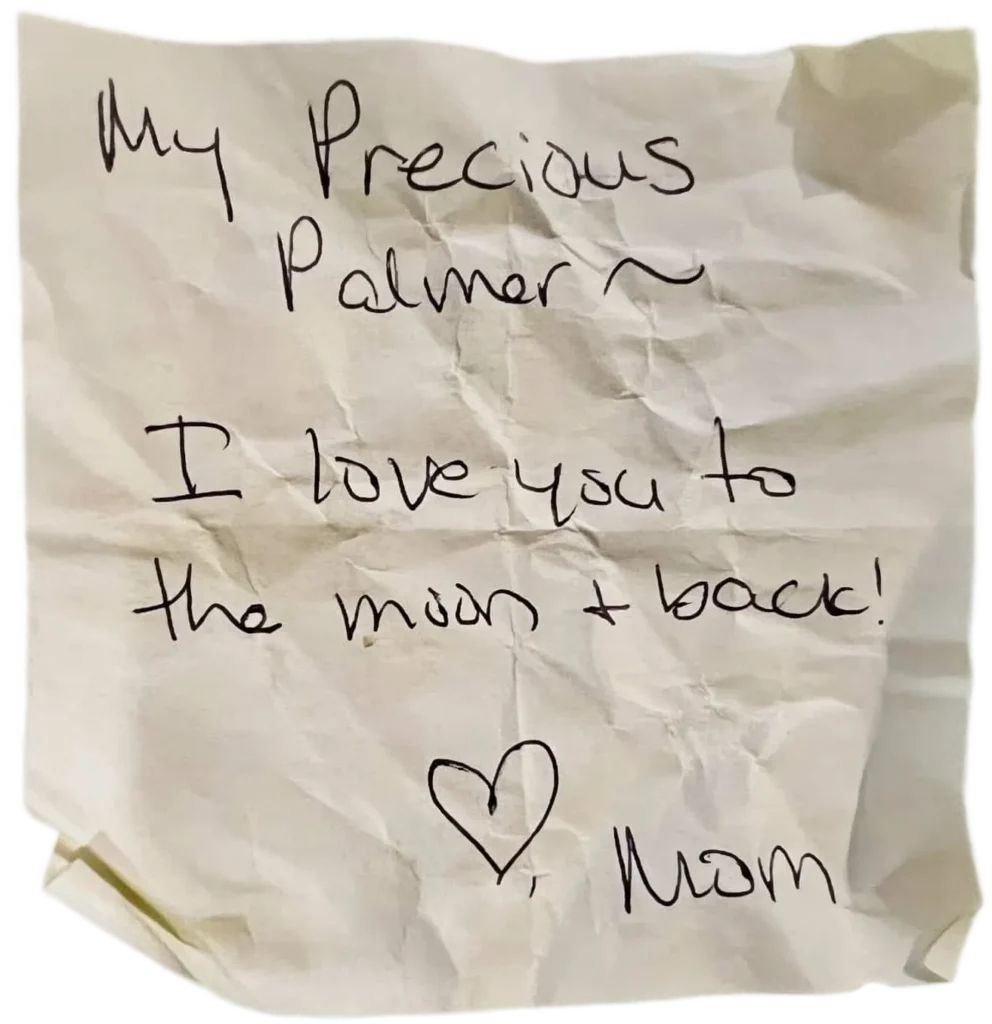 My Precious
Palmer ~
I love you to
the moon + back!
♡, Mom